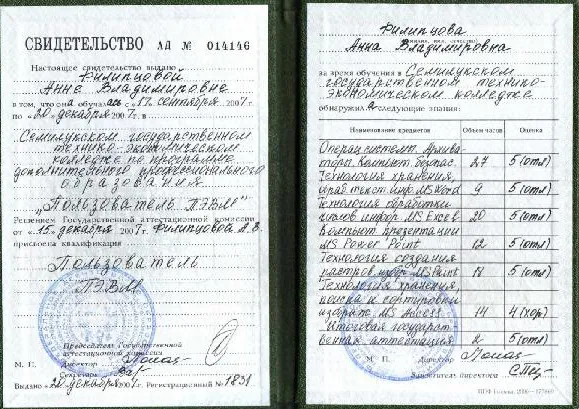 СВИДЕТЕЛЬСТВО АА № 014146
Настоящее свидетельство выдано
Филипцовой
Анне Владимировне
в том, что она обучалась с 17 сентября 2007 г.
по «20» декабря 2007 г. в
Семилукском государственном
технико-экономическом
колледже по программе
дополнительного профессионального
образования
"Пользователь ПЭВМ"
Решением Государственной аттестационной комиссии
от «15» декабря 2007 г. Филипцовой А.В.
присвоена квалификация
Пользователь
ПЭВМ
Председатель Государственной
аттестационной комиссии
М. П. Директор
Секретарь
Выдано «20» декабря 2007 г. Регистрационный № 1831
Филипцова
Анна Владимировна
за время обучения в Семилукском
государственном технико-
экономическом колледже
обнаружила следующие знания:
Наименование предметов Объем часов Оценка
Операц систем. Архива-
торы. Компьют. безопас. 27 5 (отл)
Технология хранения,
обраб текст. инф. MS Word 9 5 (отл)
Технология обработки
числов инфор. MS Excel 20 5 (отл)
Компьют презентации
MS Power Point 12 5 (отл)
Технология создания
растров. изобр MS Paint 5 (отл)
Технология хранения,
поиска и сортировки
MS Access 14 4 (хор)
Итоговая государст-
венная аттестация 2 5 (отл)
М. П. Директор
Заместитель директора